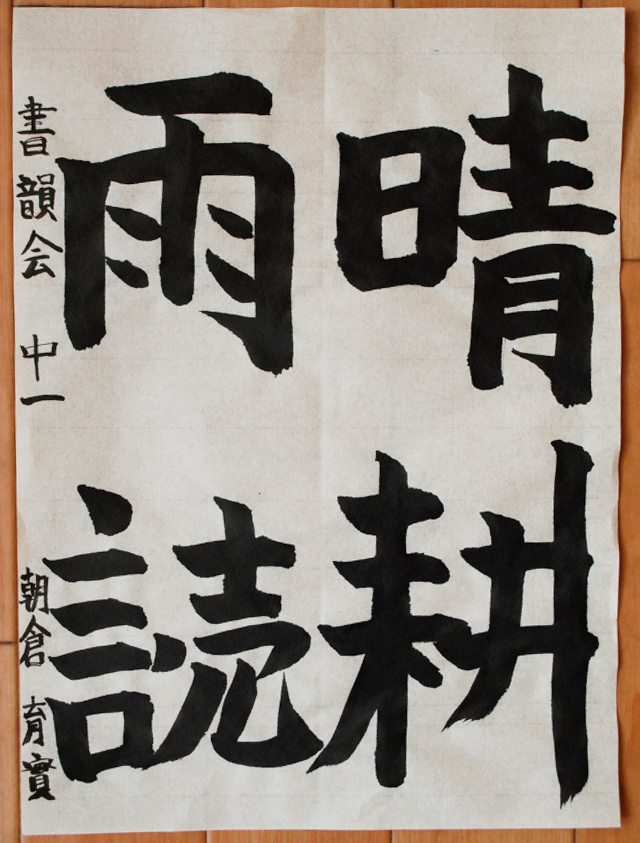 晴耕
雨読
書韻会 中一 朝倉 育實